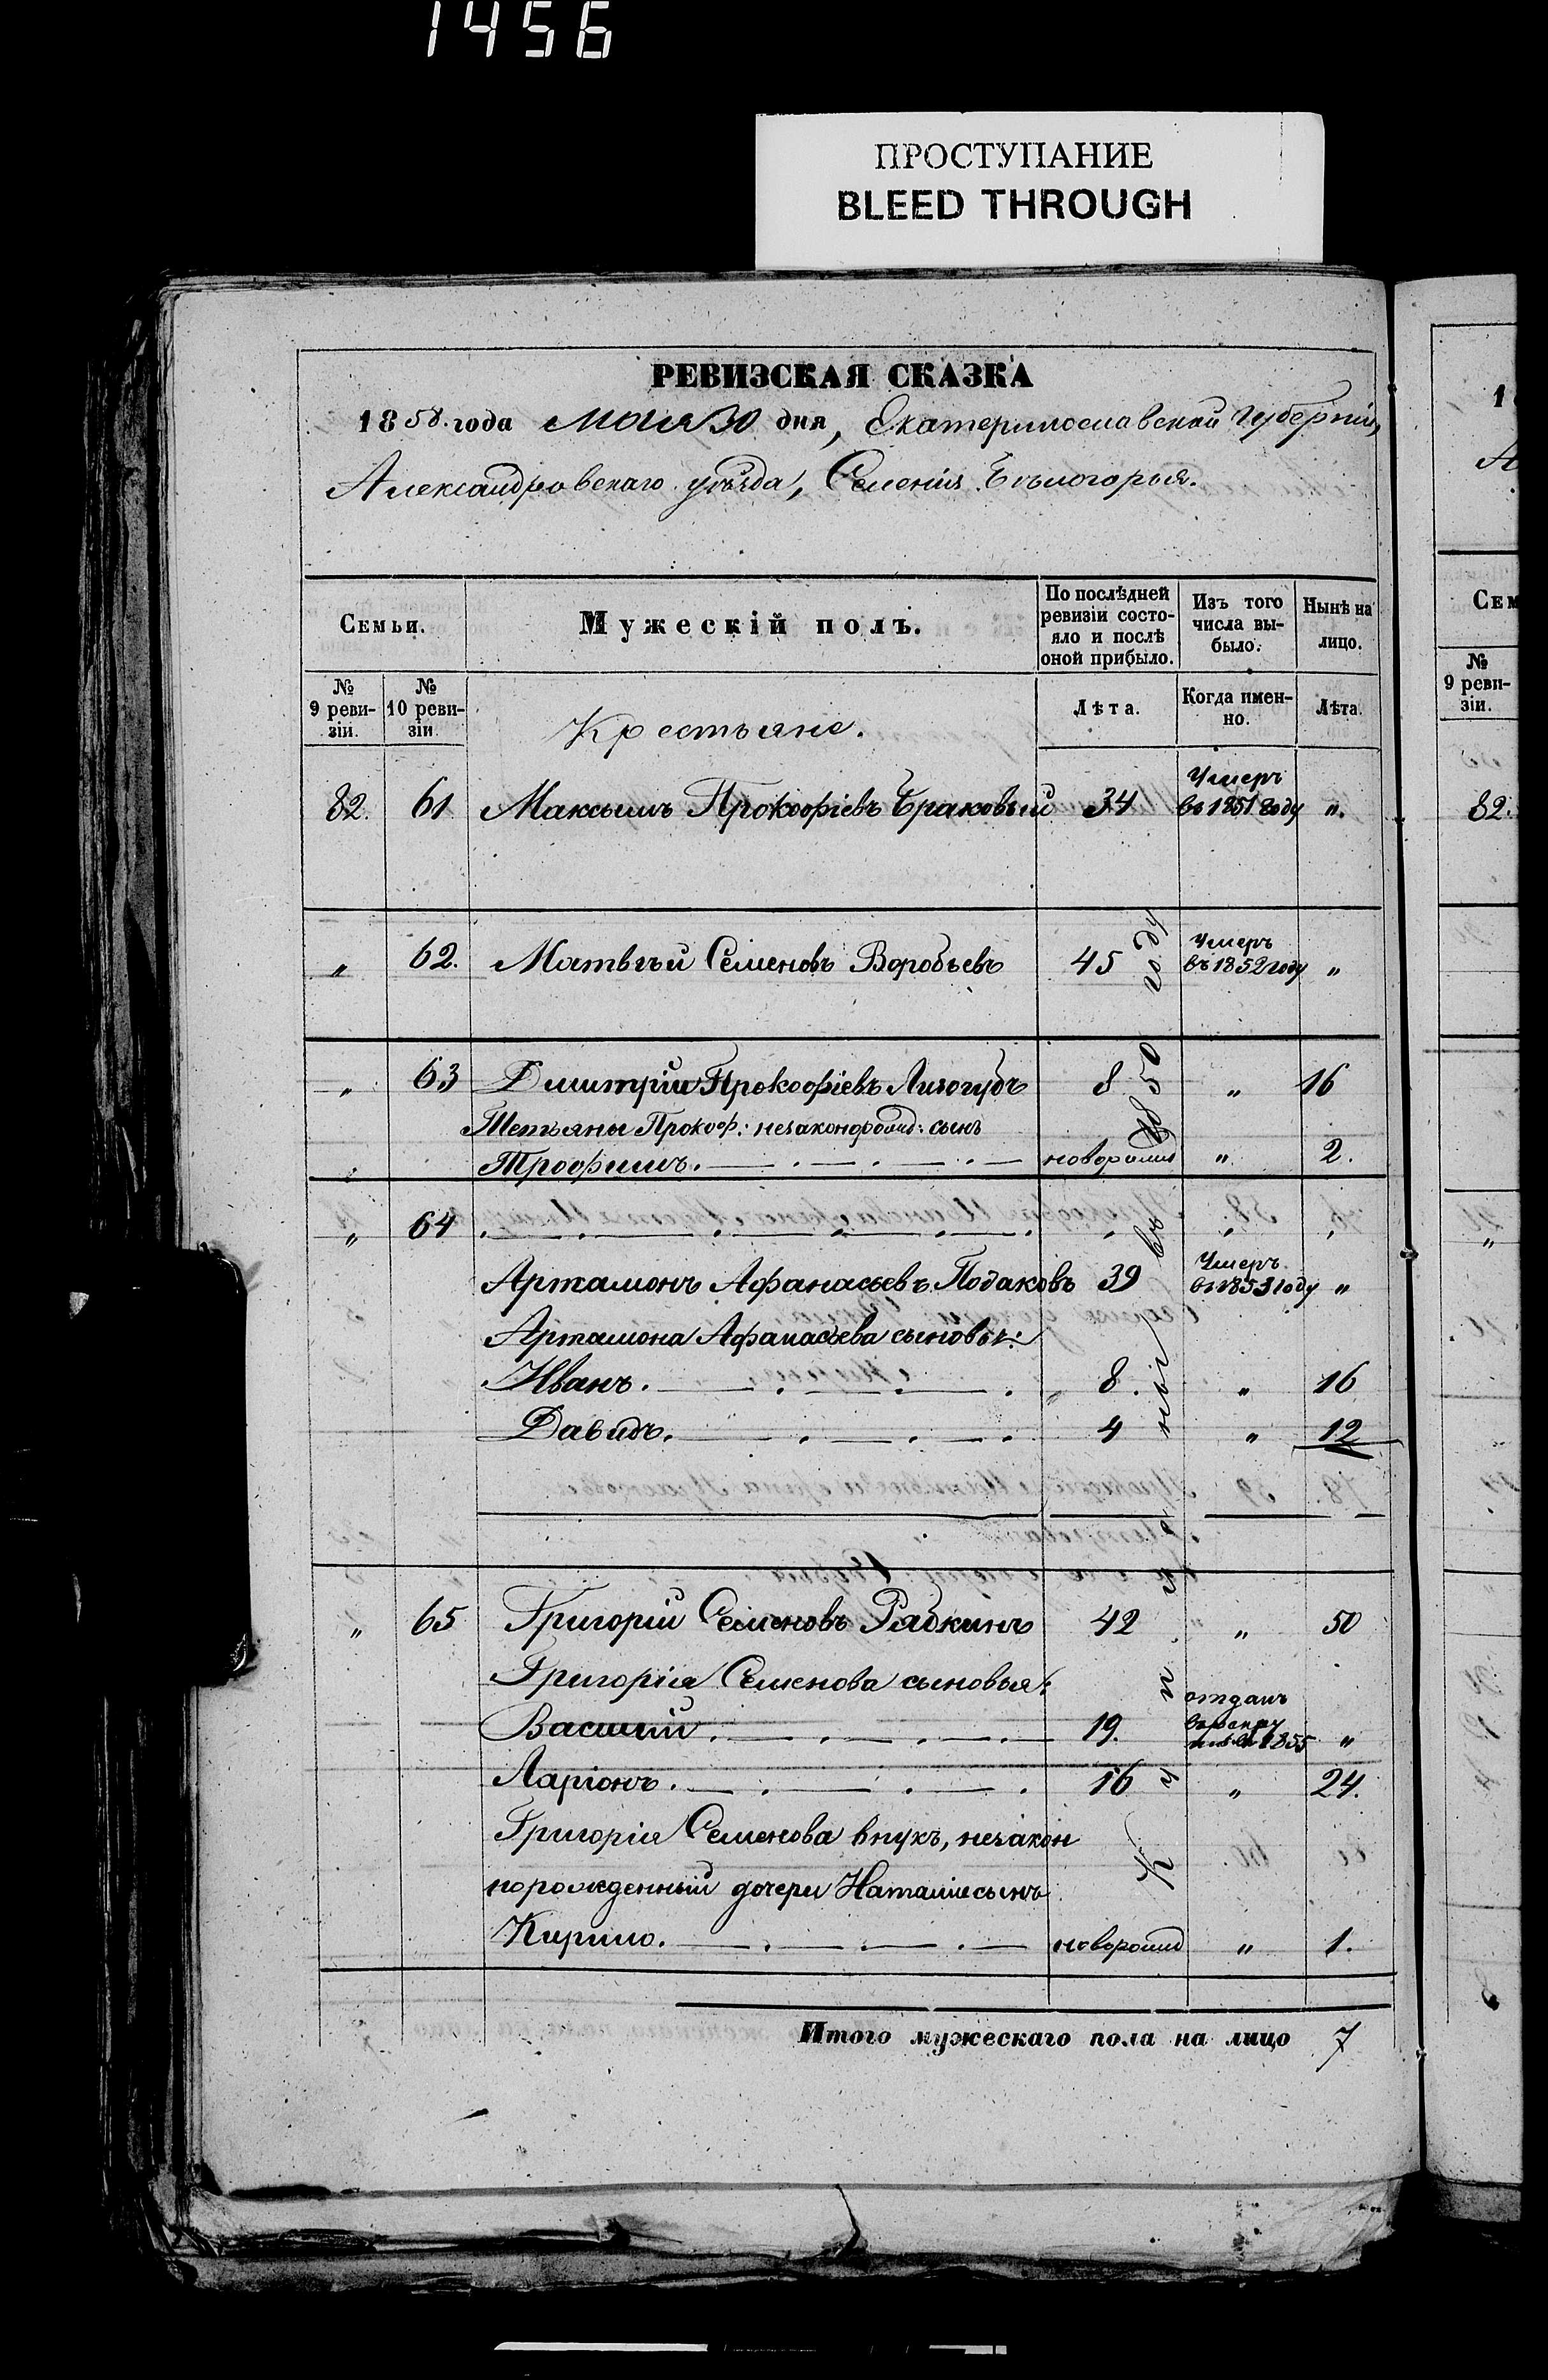 1456
ПРОСТУПАНИЕ
BLEED THROUGH
РЕВИЗСКАЯ СКАЗКА
1858. года Мая 30 дня, Екатеринославской Губерніи,
Александровскаго уѣзда, Селенія Бѣлогорья.
Семьи.
Мужескій полъ.
По послѣдней ревизіи состояло и послѣ оной прибыло.
Изъ того числа выбыло.
Нынѣ на лицо.
№ 9 ревизіи.
№ 10 ревизіи
Крестьяне.
Лѣта.
Когда именно.
Лѣта.
82. 61 Максимъ Прокофіевъ Браковый 34 Умеръ въ 1851 году „.
„ 62. Матвѣй Семеновъ Воробьевъ 45 Умеръ въ 1852 году „
„ 63 Дмитрій Прокофіевъ Лизогубъ 8 „ 16
Тетьяны Прокоф: незаконорожд: сынъ
Трофимъ. новорожд „ 2.
„ 64 „ „ „
Артамонъ Афанасьевъ Подаковъ 39 Умеръ въ 1853 году „
Артамона Афанасьева сыновья:
Иванъ. 8. „ 16
Давидъ. 4 „ 12
„ 65 Григорій Семеновъ Рябкинъ 42 „ 50
Григорія Семенова сыновья:
Василій. 19. отданъ въ рекруты въ 1855 „
Ларіонъ. 16 „ 24.
Григорія Семенова внукъ, незакон
норожденный дочери Наталіи сынъ
Кирило. новорожд „ 1.
въ 1850 году
Итого мужескаго пола на лицо 7
Сем
№ 9 ревизіи.
82.
„